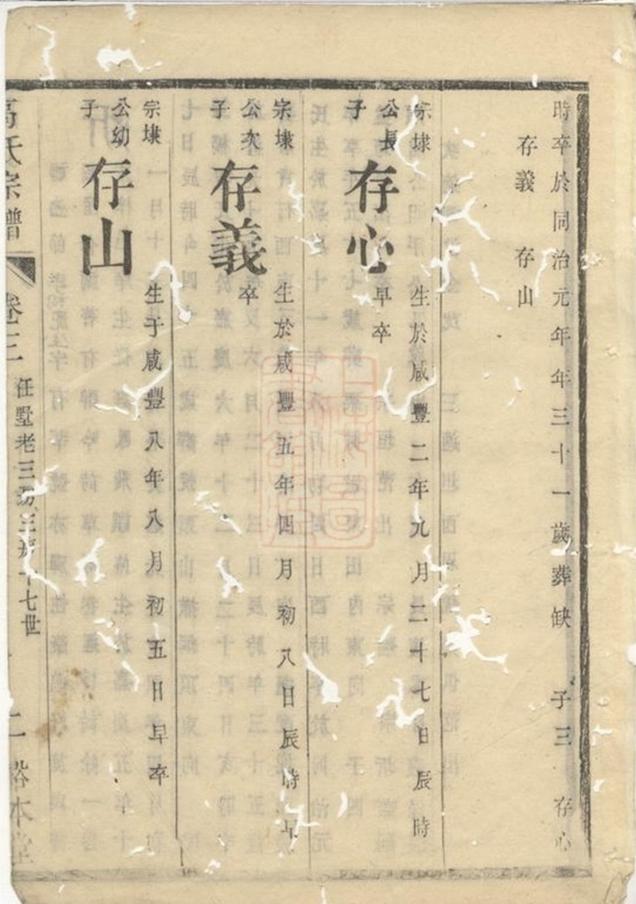 時卒於同治元年年三十一歲葬缺 子三 存心
存義 存山
宗埭公長子 存心 生於咸豐二年九月二十七日辰時
早卒
宗埭公次子 存義 生於咸豐五年四月初八日辰時早
卒
宗埭公幼子 存山 生于咸豐八年八月初五日早卒
氏宗譜 卷三 任墅老三房三 十七世 二